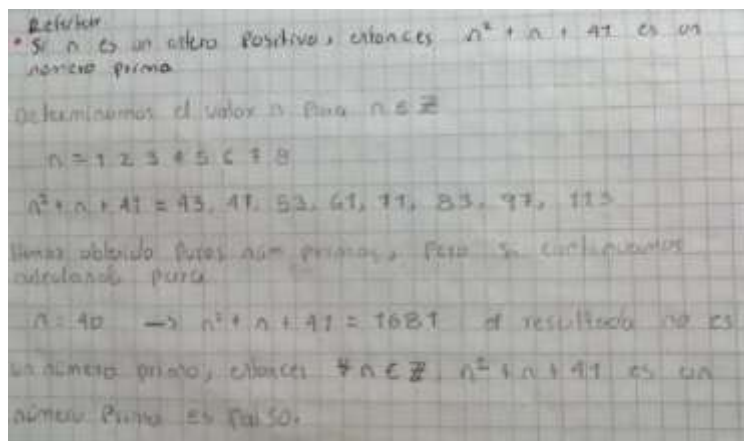 Refutar
• Si n es un entero Positivo, entonces n² + n + 41 es un
número primo
Determinamos el valor n para n ∈ ℤ
n = 1 2 3 4 5 6 7 8
n² + n + 41 = 43, 47, 53, 61, 71, 83, 97, 113
Hemos obtenido puros núm primos, Pero si continuamos
calculando para
n = 40 → n² + n + 41 = 1681 el resultado no es
un número primo, entonces ∀ n ∈ ℤ n² + n + 41 es un
número Primo es Falso.